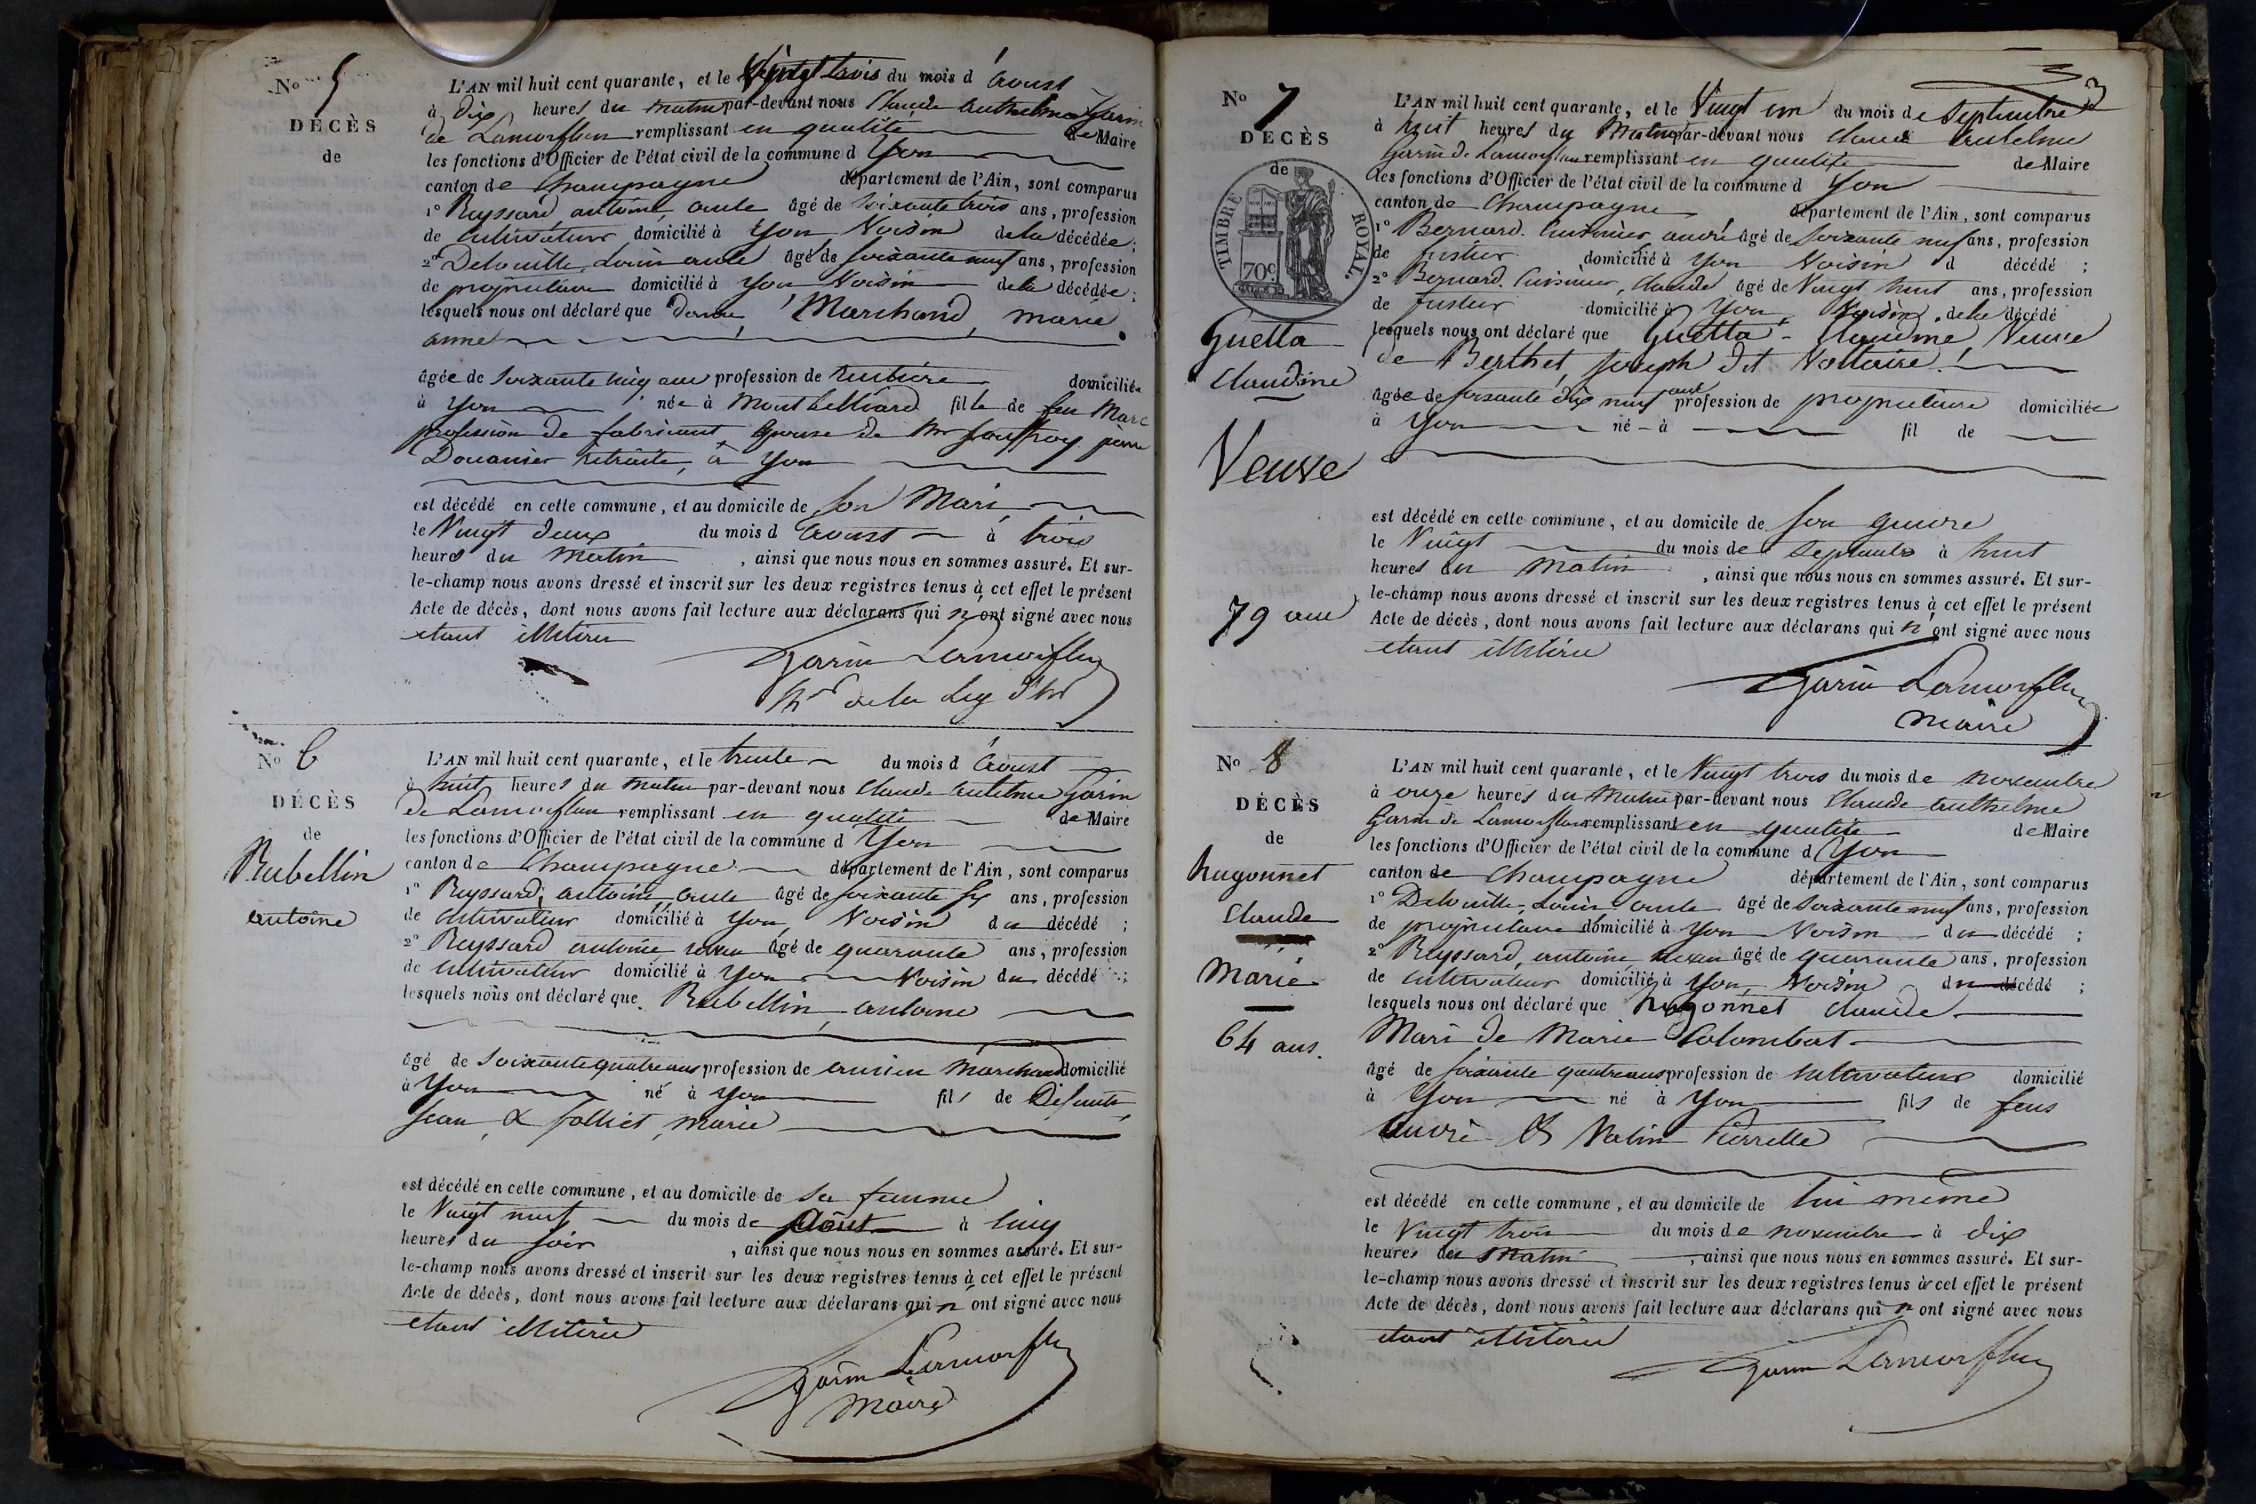 No 5
DÉCÈS
de
L'AN mil huit cent quarante, et le Vingt trois du mois d'Aoust
à dix heures du matin par-devant nous Claude Anthelme Garin
de Lamorflan remplissant en qualité de Maire
les fonctions d'Officier de l'état civil de la commune d Yon
canton de Champagne département de l'Ain, sont comparus
1º Reyssard, antoine, oncle âgé de soixante trois ans, profession
de cultivateur domicilié à Yon Voisin de la décédée;
2º Delouille, Louis oncle âgé de soixante neuf ans, profession
de propriétaire domicilié à Yon Voisin de la décédée;
lesquels nous ont déclaré que Dame Marchand, marie
anne
âgée de soixante cinq ans profession de rentière domiciliée
à Yon née à Montbelliard fille de feu Marc
profession de fabricant, Epouse de Mr Jouffroy pierre
Douanier retraité, à Yon
est décédé en cette commune, et au domicile de son Mari
le Vingt deux du mois d'Aoust à trois
heures du matin, ainsi que nous nous en sommes assuré. Et sur-
le-champ nous avons dressé et inscrit sur les deux registres tenus à cet effet le présent
Acte de décès, dont nous avons fait lecture aux déclarans qui n'ont signé avec nous
etant illitérés
Garin Lamorflan
de la Leg d'hr
No 6
DÉCÈS
de
Rubellin
antoine
L'AN mil huit cent quarante, et le trente du mois d'Aoust
à huit heures du matin par-devant nous Claude Antelme Garin
de Lamorflan remplissant en qualité de Maire
les fonctions d'Officier de l'état civil de la commune d Yon
canton de Champagne département de l'Ain, sont comparus
1º Reyssard, antoine, oncle âgé de soixante six ans, profession
de cultivateur domicilié à Yon, Voisin du décédé;
2º Reyssard antoine neveu âgé de quarante ans, profession
de cultivateur domicilié à Yon Voisin du décédé;
lesquels nous ont déclaré que Rubellin, antoine
âgé de soixante quatre ans profession de ancien marchand domicilié
à Yon né à Yon fils de Défunts
Jean & folliet, marie
est décédé en cette commune, et au domicile de sa femme
le Vingt neuf du mois de Août à cinq
heures du soir, ainsi que nous nous en sommes assuré. Et sur-
le-champ nous avons dressé et inscrit sur les deux registres tenus à cet effet le présent
Acte de décès, dont nous avons fait lecture aux déclarans qui n'ont signé avec nous
etant illitérés
Garin Lamorflan
Maire
3
No 7
DÉCÈS
de
TIMBRE ROYAL
70c
Guetta
Claudine
Veuve
79 ans
L'AN mil huit cent quarante, et le Vingt un du mois de Septembre
à huit heures du Matin par-devant nous Claude Antelme
Garin de Lamorflan remplissant en qualité de Maire
les fonctions d'Officier de l'état civil de la commune d Yon
canton de Champagne département de l'Ain, sont comparus
1º Bernard. Cuisinier andré âgé de soixante neuf ans, profession
de fustier domicilié à Yon Voisin d décédé;
2º Bernard. Cuisinier, Claude âgé de Vingt huit ans, profession
de fustier domicilié à Yon, Voisin, de la décédé
lesquels nous ont déclaré que Guetta - Claudine Veuve
de Berthet, Joseph dit Voltaire
âgée de soixante dix neuf ans profession de propriétaire domiciliée
à Yon né à fil de
est décédé en cette commune, et au domicile de son gendre
le Vingt du mois de Septembre à huit
heures du Matin, ainsi que nous nous en sommes assuré. Et sur-
le-champ nous avons dressé et inscrit sur les deux registres tenus à cet effet le présent
Acte de décès, dont nous avons fait lecture aux déclarans qui n'ont signé avec nous
etant illitérés
Garin Lamorflan
maire
No 8
DÉCÈS
de
hugonnet
Claude
Marié
64 ans.
L'AN mil huit cent quarante, et le Vingt trois du mois de novembre
à onze heures du Matin par-devant nous Claude Anthelme
Garin de Lamorflan remplissant en qualité de Maire
les fonctions d'Officier de l'état civil de la commune d Yon
canton de Champagne département de l'Ain, sont comparus
1º Delouille, Louis oncle âgé de soixante neuf ans, profession
de propriétaire domicilié à Yon Voisin du décédé;
2º Reyssard, antoine neveu âgé de quarante ans, profession
de cultivateur domicilié à Yon, Voisin du décédé;
lesquels nous ont déclaré que hugonnet Claude
Mari de Marie Colombat
âgé de soixante quatre ans profession de cultivateur domicilié
à Yon né à Yon fils de feus
André Et Vatin Pierrette
est décédé en cette commune, et au domicile de lui même
le Vingt trois du mois de novembre à dix
heures du Matin, ainsi que nous nous en sommes assuré. Et sur-
le-champ nous avons dressé et inscrit sur les deux registres tenus à cet effet le présent
Acte de décès, dont nous avons fait lecture aux déclarans qui n'ont signé avec nous
etant illitérés
Garin Lamorflan